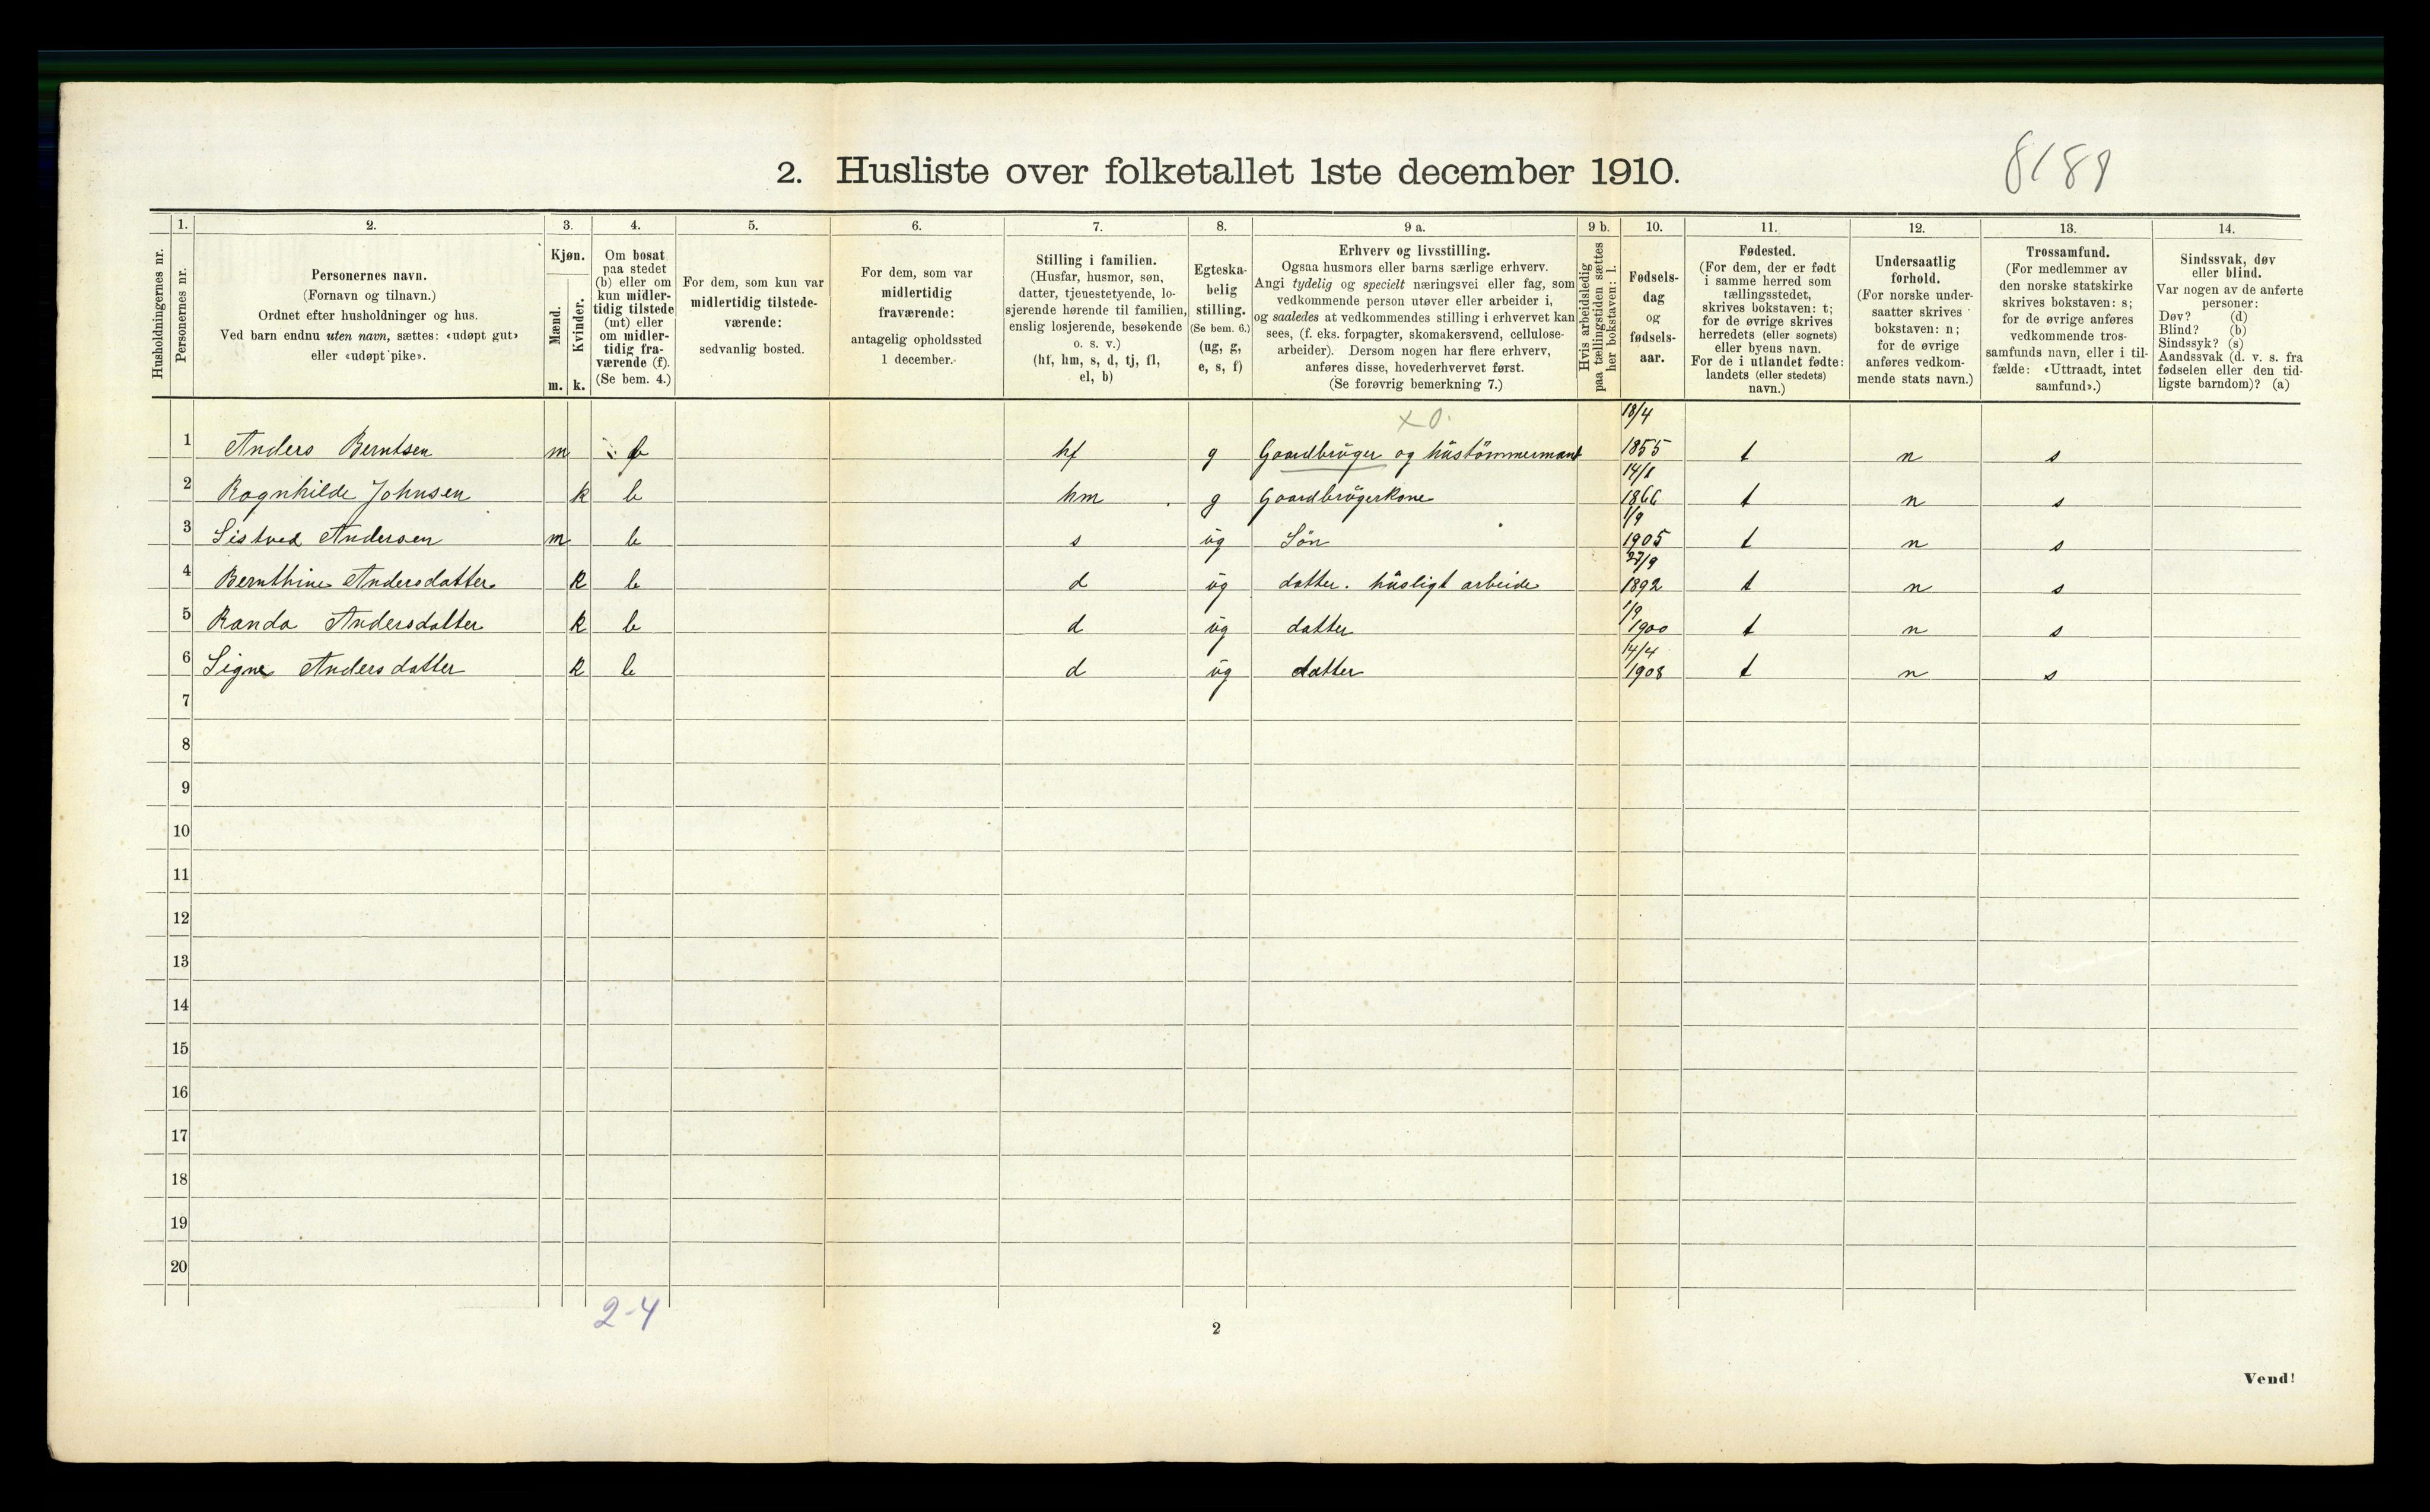 8189
2. Husliste over folketallet 1ste december 1910.
Husholdningernes nr.
1.
Personernes nr.
2.
Personernes navn.
(Fornavn og tilnavn.)
Ordnet efter husholdninger og hus.
Ved barn endnu uten navn, sættes: «udøpt gut»
eller «udøpt pike».
3.
Kjøn.
Mænd.
m.
Kvinder.
k.
4.
Om bosat
paa stedet
(b) eller om
kun midler-
tidig tilstede
(mt) eller
om midler-
tidig fra-
værende (f).
(Se bem. 4.)
5.
For dem, som kun var
midlertidig tilstede-
værende:
sedvanlig bosted.
6.
For dem, som var
midlertidig
fraværende:
antagelig opholdssted
1 december.
7.
Stilling i familien.
(Husfar, husmor, søn,
datter, tjenestetyende, lo-
sjerende hørende til familien,
enslig losjerende, besøkende
o. s. v.)
(hf, hm, s, d, tj, fl,
el, b)
8.
Egteska-
belig
stilling.
(Se bem. 6.)
(ug, g,
e, s, f)
9 a.
Erhverv og livsstilling.
Ogsaa husmors eller barns særlige erhverv.
Angi tydelig og specielt næringsvei eller fag, som
vedkommende person utøver eller arbeider i,
og saaledes at vedkommendes stilling i erhvervet kan
sees, (f. eks. forpagter, skomakersvend, cellulose-
arbeider). Dersom nogen har flere erhverv,
anføres disse, hovederhvervet først.
(Se forøvrig bemerkning 7.)
9 b.
Hvis arbeidsledig
paa tællingstiden sættes
her bokstaven: l.
10.
Fødsels-
dag
og
fødsels-
aar.
11.
Fødested.
(For dem, der er født
i samme herred som
tællingsstedet,
skrives bokstaven: t;
for de øvrige skrives
herredets (eller sognets)
eller byens navn.
For de i utlandet fødte:
landets (eller stedets)
navn.)
12.
Undersaatlig
forhold.
(For norske under-
saatter skrives
bokstaven: n;
for de øvrige
anføres vedkom-
mende stats navn.)
13.
Trossamfund.
(For medlemmer av
den norske statskirke
skrives bokstaven: s;
for de øvrige anføres
vedkommende tros-
samfunds navn, eller i til-
fælde: «Uttraadt, intet
samfund».)
14.
Sindssvak, døv
eller blind.
Var nogen av de anførte
personer:
Døv? (d)
Blind? (b)
Sindssyk? (s)
Aandssvak (d. v. s. fra
fødselen eller den tid-
ligste barndom)? (a)
x 0.
1 Anders Berntsen m b hf g Gaardbrüger og hüstömmermand 18/4 1855 t n s
2 Ragnhilde Johnsen k b hm g Gaardbrügerkone 14/1 1866 t n s
3 Sistved Andersen m b s üg Sön 1/9 1905 t n s
4 Bernthine Andersdatter k b d üg datter. hüsligt arbeide 27/9 1892 t n s
5 Randa Andersdatter k b d üg datter 1/9 1900 t n s
6 Signe Andersdatter k b d üg datter 14/4 1908 t n s
7
8
9
10
11
12
13
14
15
16
17
18
19
20
2-4
2
Vend!